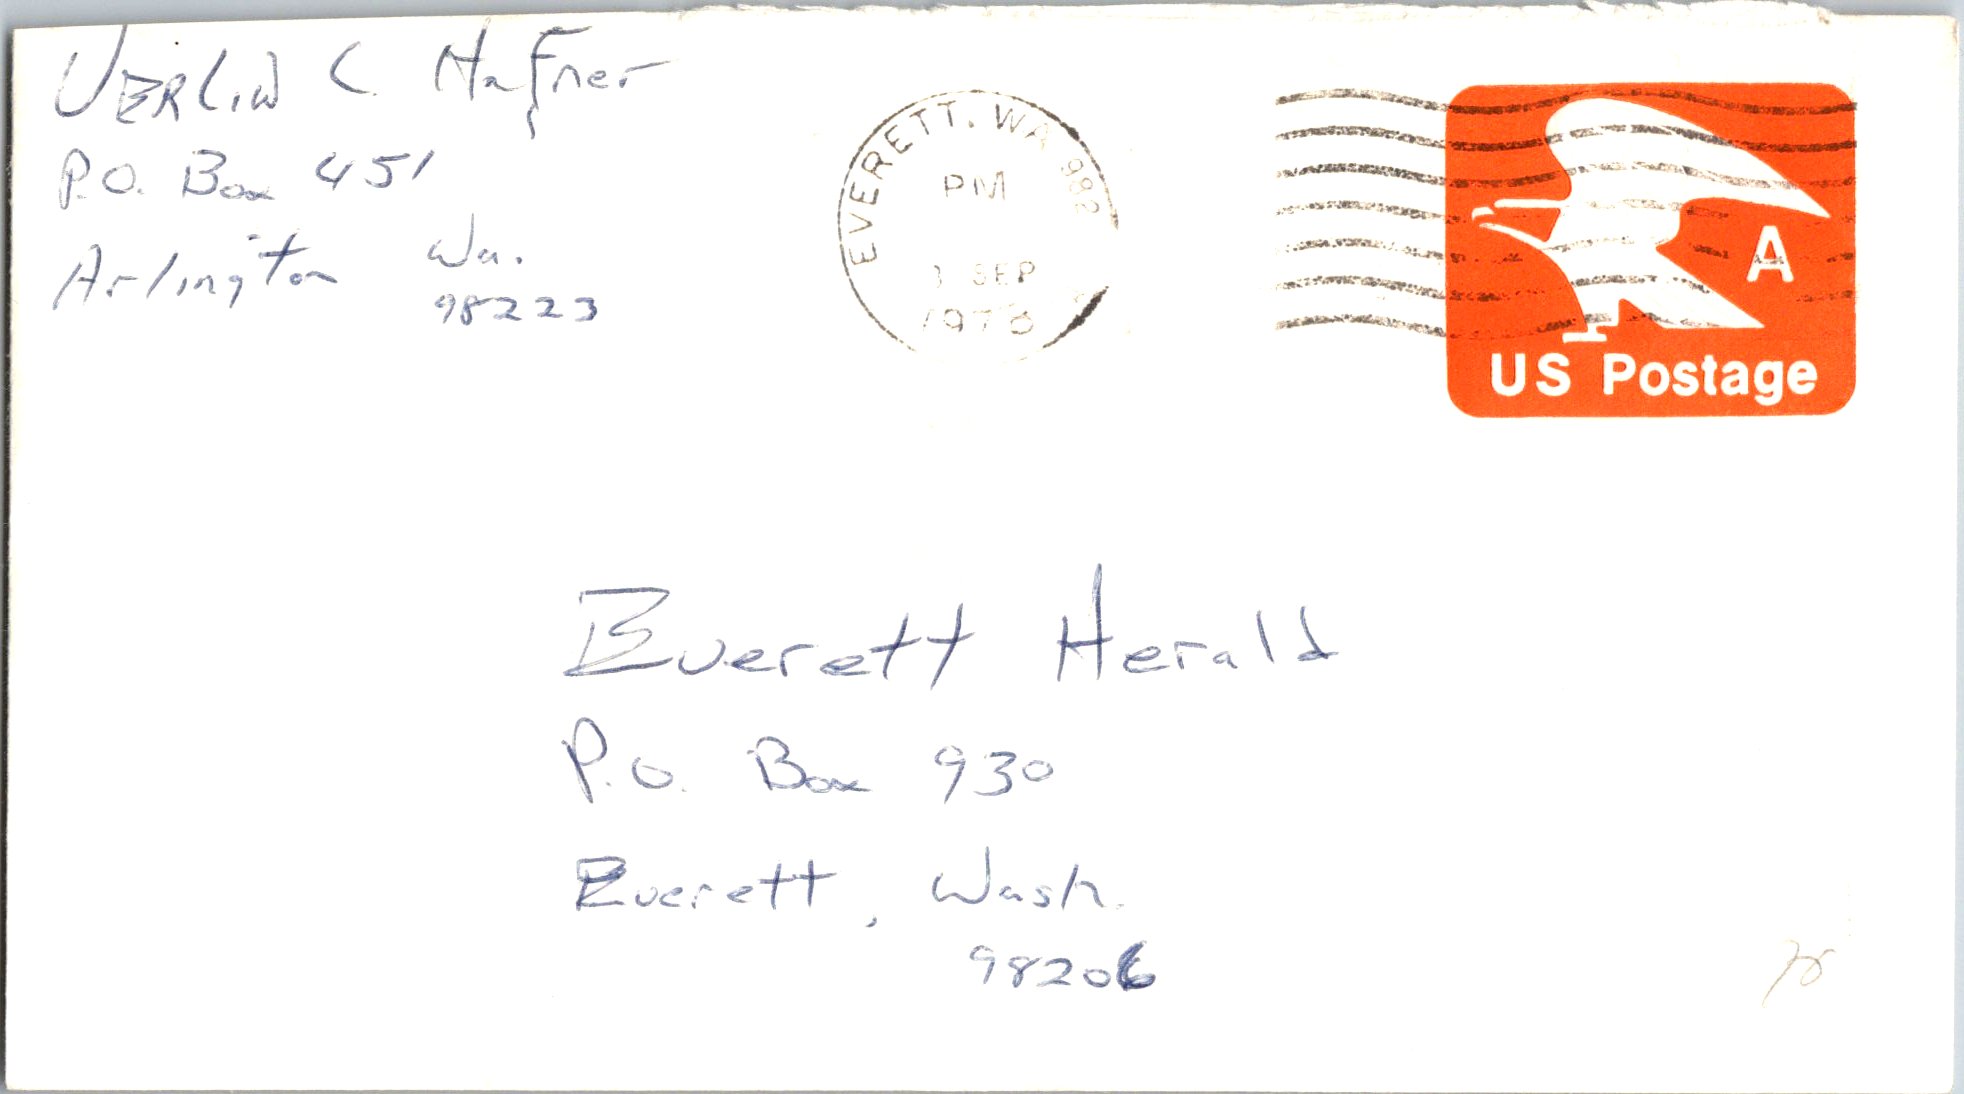 VERLIN C. Hafner
P.O. Box 451
Arlington Wa.
98223
EVERETT. WA 982
PM
SEP
1978
A
US Postage
Everett Herald
P.O. Box 930
Everett, Wash.
98206